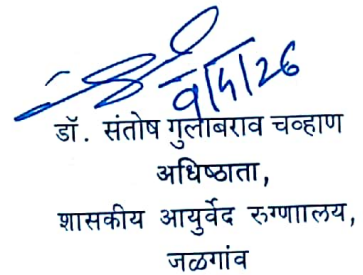 डॉ. संतोष गुलाबराव चव्हाण
अधिष्ठाता,
शासकीय आयुर्वेद रुग्णाालय,
जळगांव